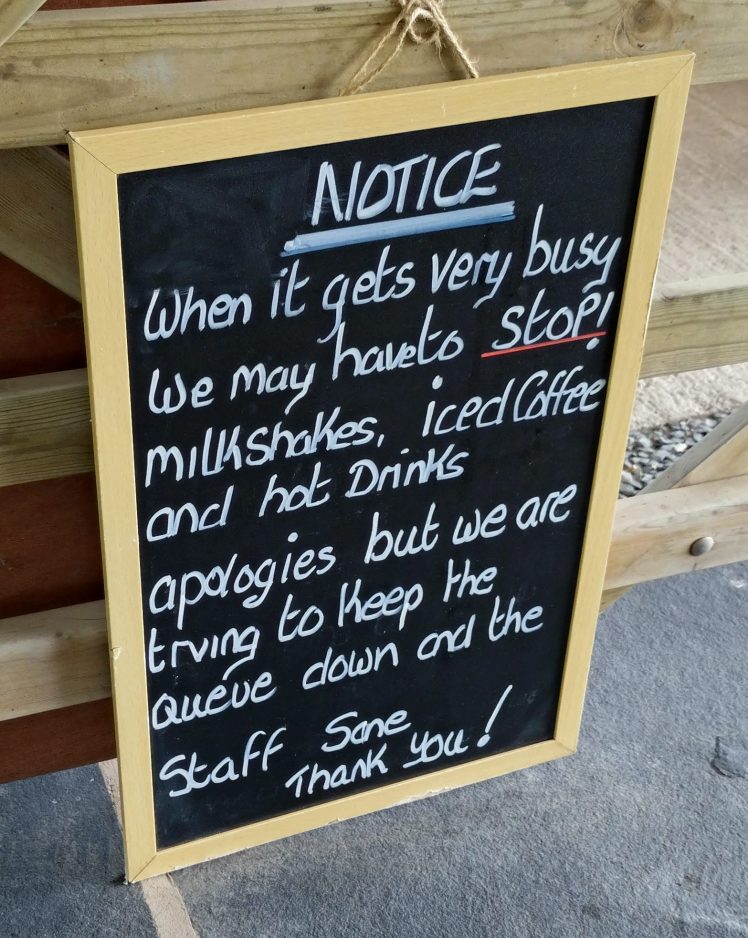 NOTICE
When it gets very busy
We may haveto Stop!
milkshakes, iced Coffee
and hot Drinks
apologies but we are
trying to Keep the
queue down and the
Staff Sane
Thank You!